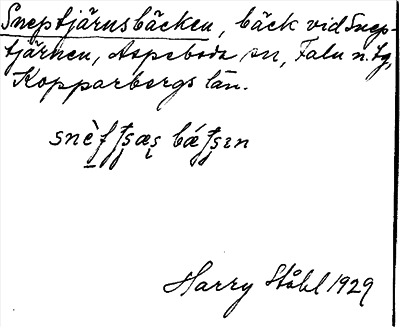 Sneptjärnsbäcken, bäck vid Snep-
tjärnen, Aspeboda sn, Falu n. tg,
Kopparbergs län.
Harry Ståhl 1929